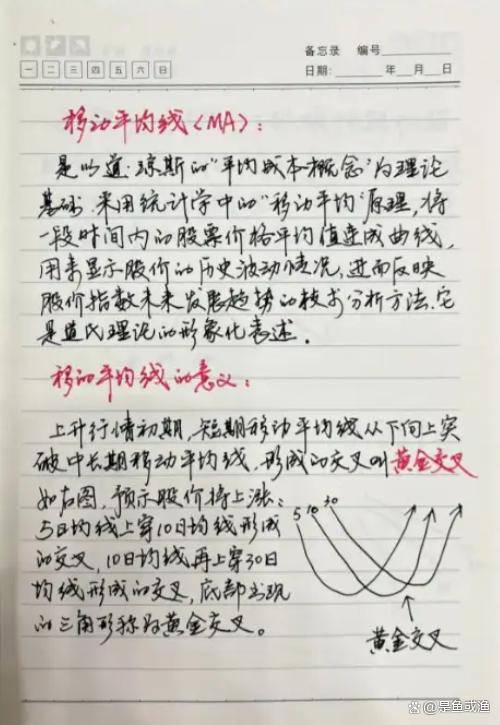 备忘录 编号
一 二 三 四 五 六 日
日期: 年 月 日
移动平均线(MA):
是以道·琼斯的"平均成本概念"为理论
基础,采用统计学中的"移动平均"原理,将
一段时间内的股票价格平均值连成曲线,
用来显示股价的历史波动情况,进而反映
股价指数未来发展趋势的技术分析方法.它
是道氏理论的形象化表述。
移动平均线的意义:
上升行情初期,短期移动平均线从下向上突
破中长期移动平均线,形成的交叉叫黄金交叉
如右图,预示股价将上涨:
5日均线上穿10日均线形成
的交叉,10日均线再上穿30日
均线形成的交叉,底部出现
的三角形称为黄金交叉。
5 10 30
黄金交叉
是鱼或渔